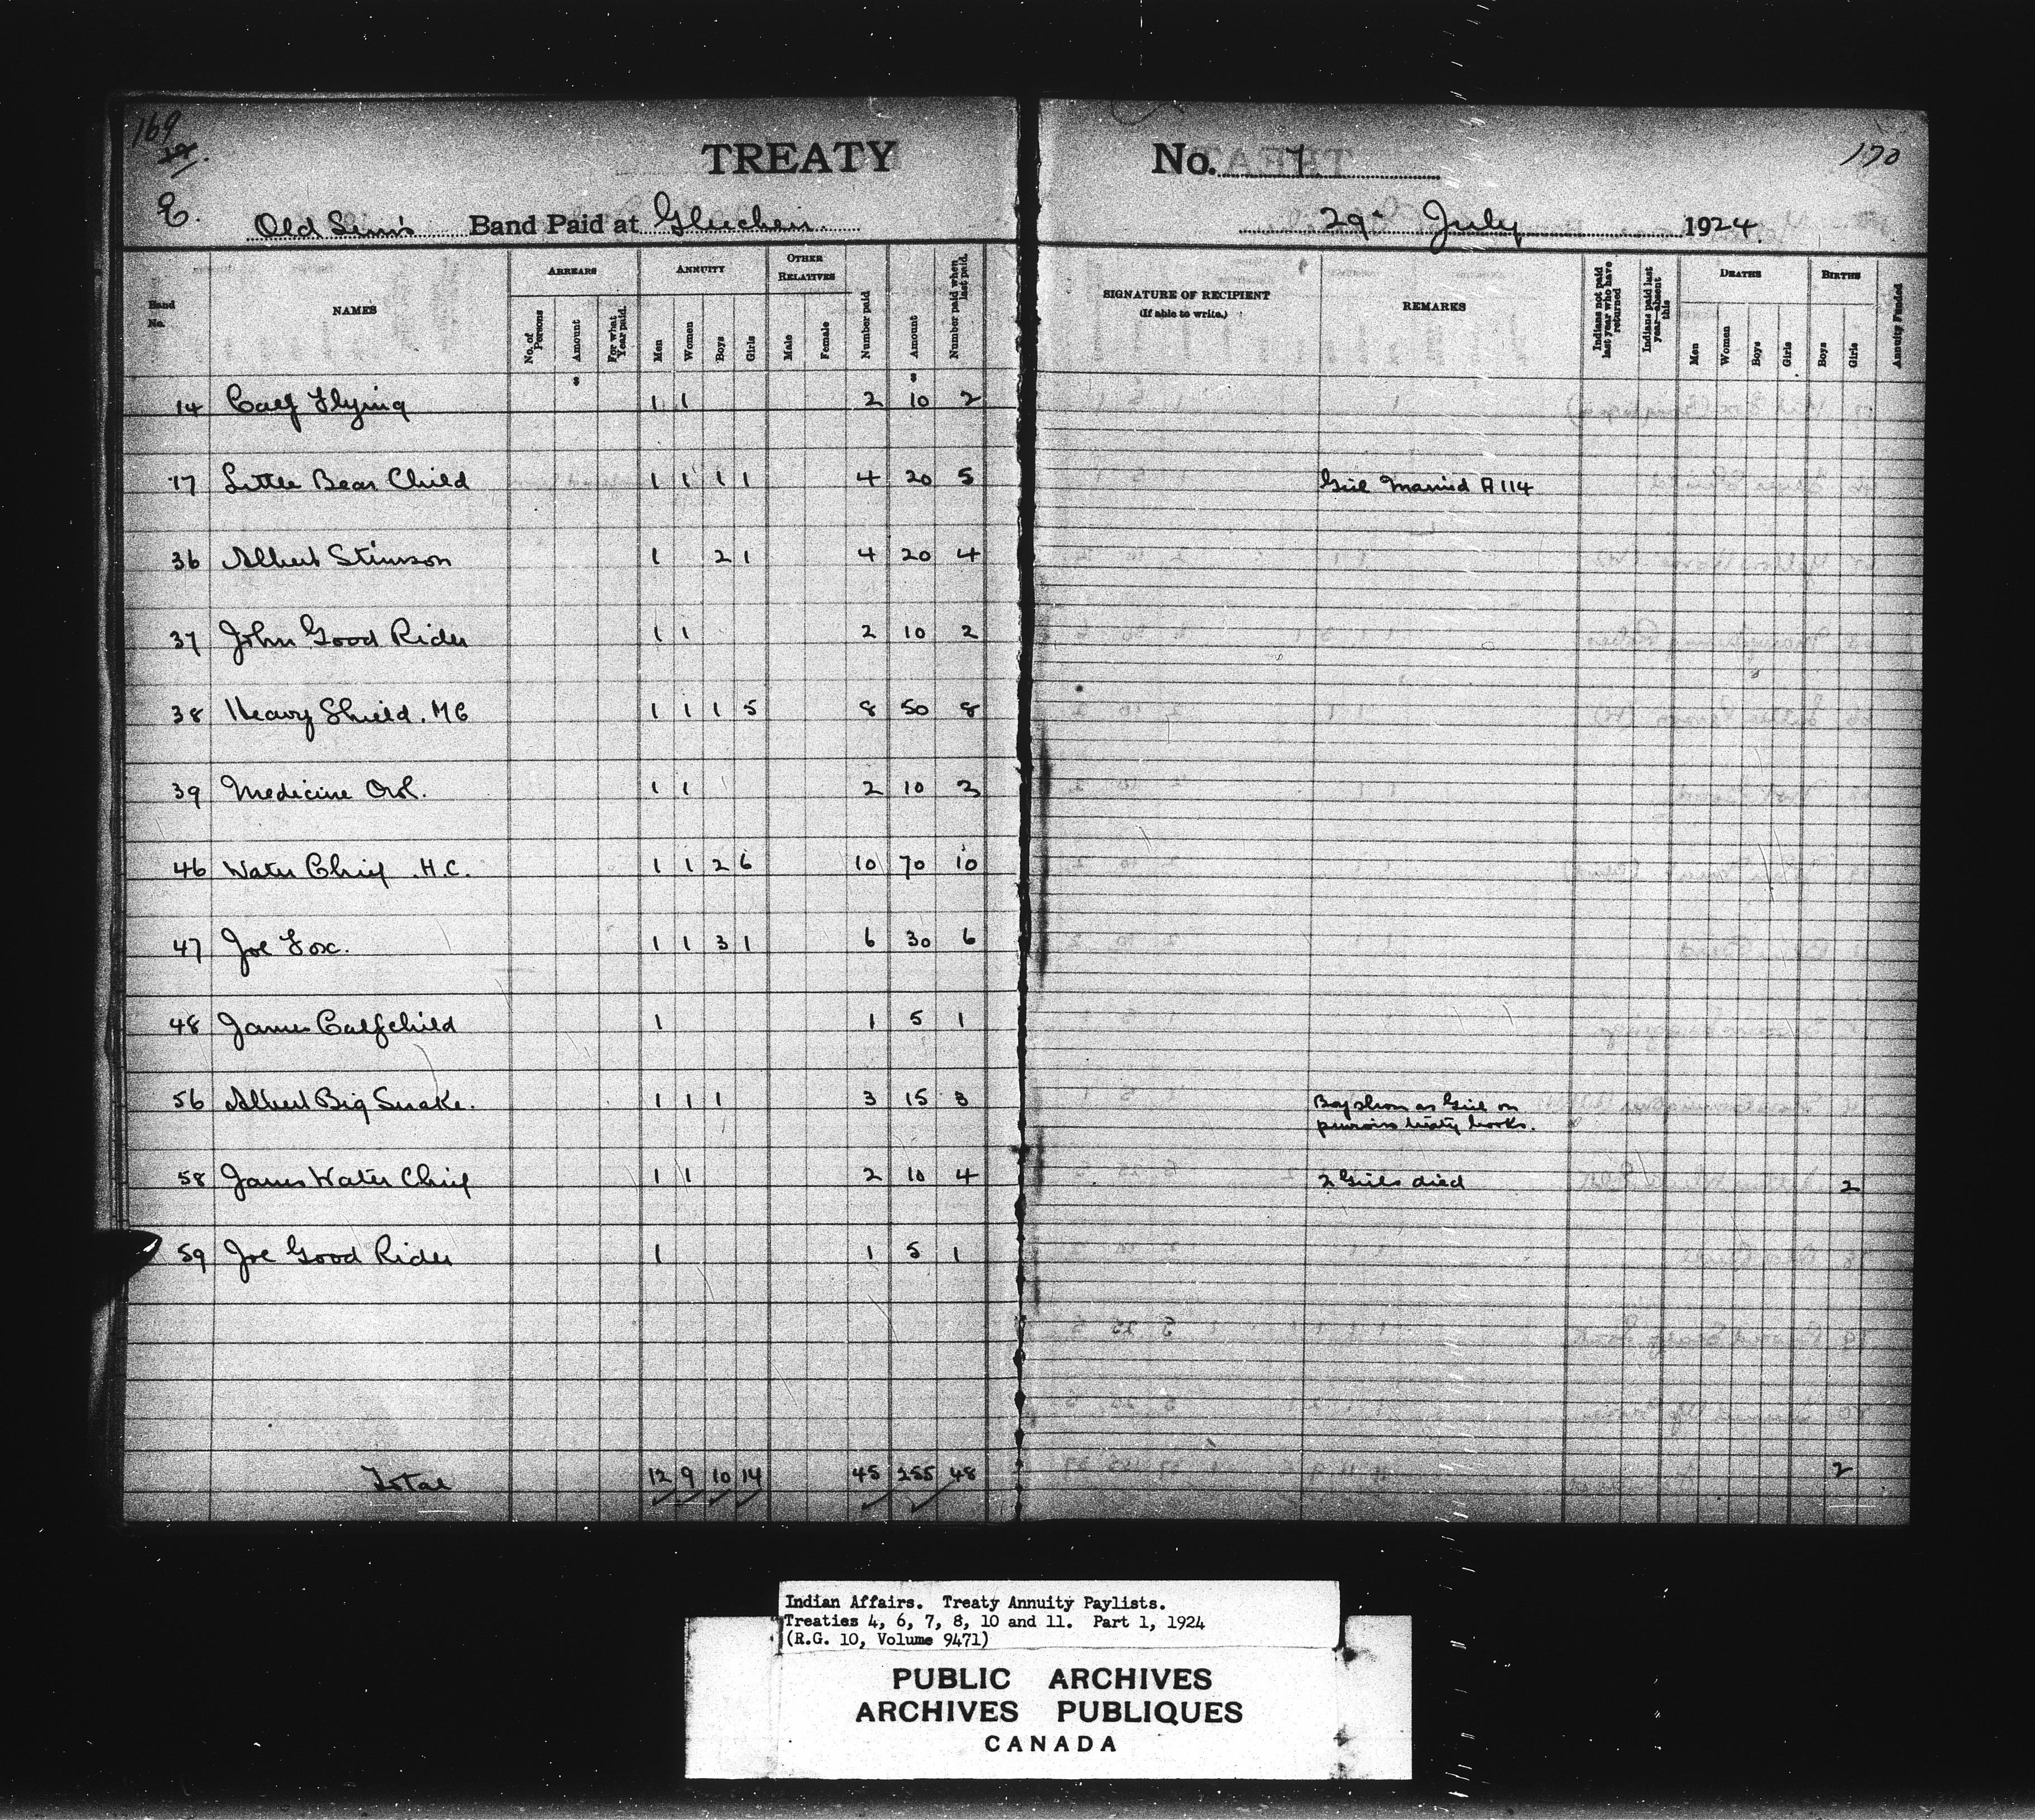 169
170
TREATY No. 7
E.
Old Sun's Band Paid at Gleichen. 29th July 1924.
Band No. NAMES ARREARS ANNUITY OTHER RELATIVES Number paid Amount Number paid when last paid. SIGNATURE OF RECIPIENT (If able to write.) REMARKS Indians not paid last year who have returned Indians paid last year—absent this DEATHS BIRTHS Annuity Funded
No. of Persons Amount For what Year paid. Men Women Boys Girls Male Female Men Women Boys Girls Boys Girls
$ $
14 Calf Flying 1 1 2 10 2
17 Little Bear Child 1 1 1 1 4 20 5 Girl Married A 114
36 Albert Stimson 1 2 1 4 20 4
37 John Good Rider 1 1 2 10 2
38 Heavy Shield. MC 1 1 1 5 8 50 8
39 Medicine Owl. 1 1 2 10 2
46 Water Chief .H.C. 1 1 2 6 10 70 10
47 Joe Fox. 1 1 3 1 6 30 6
48 James Calfchild 1 1 5 1
56 Albert Big Snake. 1 1 1 3 15 3 Boy shown as Girl on
previous treaty books.
58 James Water Chief 1 1 2 10 4 2 Girls died 2
59 Joe Good Rider 1 1 5 1
Total 12 9 10 14 45 255 48 2
Indian Affairs. Treaty Annuity Paylists.
Treaties 4, 6, 7, 8, 10 and 11. Part 1, 1924
(R.G. 10, Volume 9471)
PUBLIC ARCHIVES
ARCHIVES PUBLIQUES
CANADA